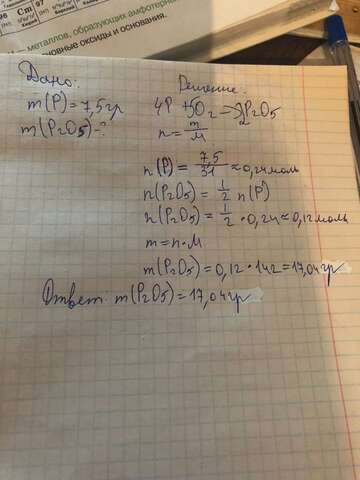 96 Cm 97
металлов, образующих амфотерные
основные оксиды и основания.
Дано:
m(P)=7,5гр
m(P₂O₅)-?
Решение.
4P+5O₂=2P₂O₅
n=m/M
n(P)=7,5/31≈0,24моль
n(P₂O₅)=1/2 n(P)
n(P₂O₅)=1/2·0,24≈0,12моль
m=n·M
m(P₂O₅)=0,12·142=17,04гр
Ответ: m(P₂O₅)=17,04гр